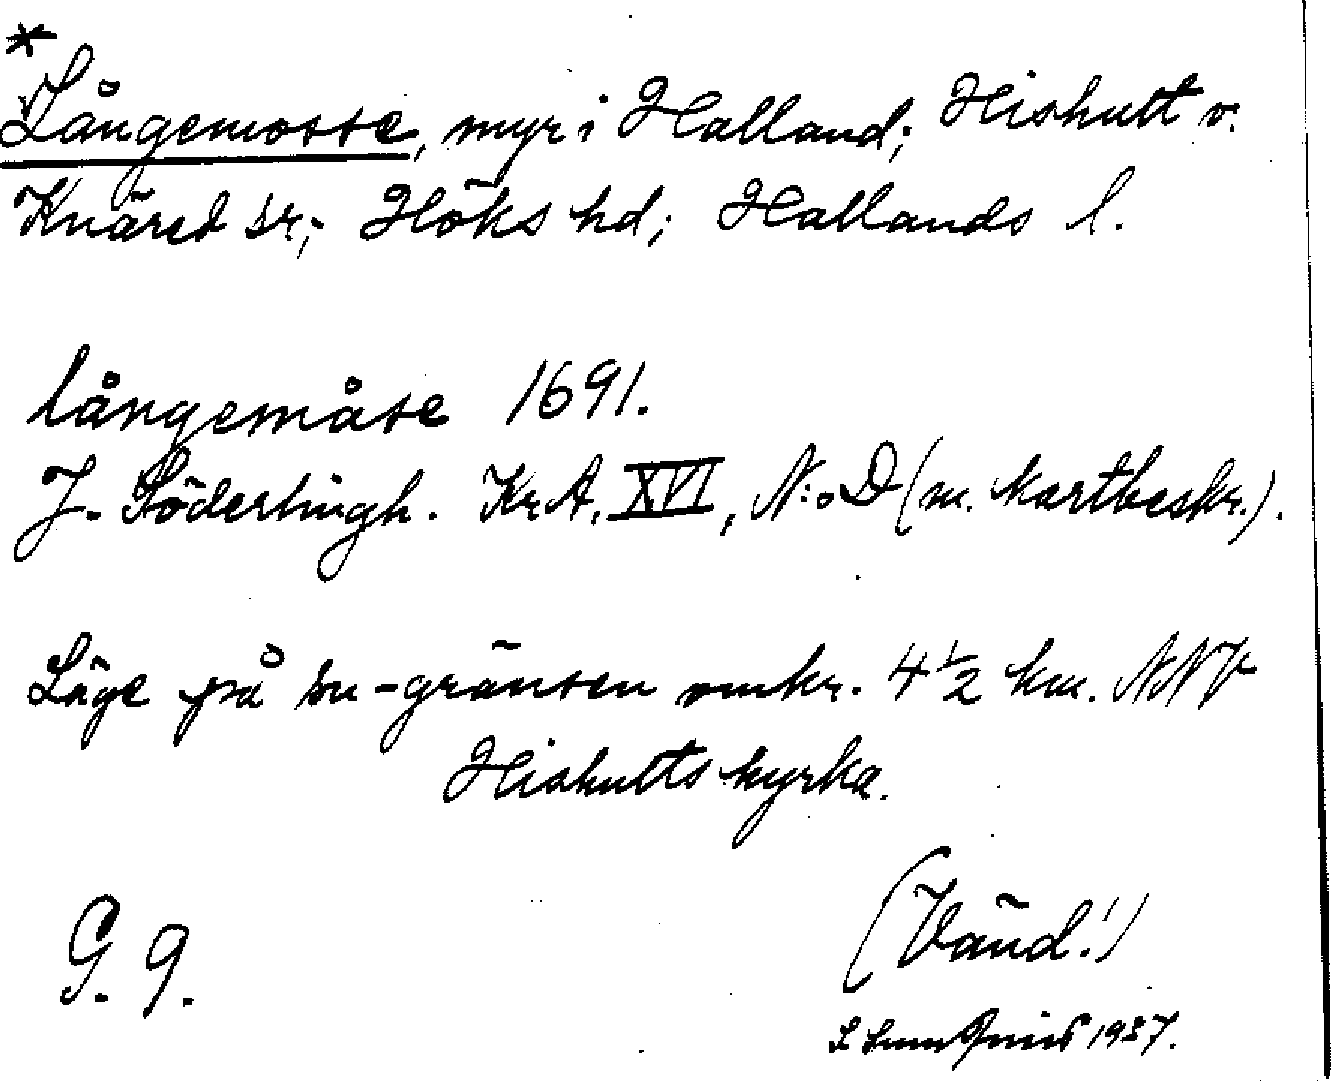 *
Långemosse, myr i Halland; Hishult o.
Knäred sr; Höks hd; Hallands l.
långemåse 1691.
J. Söderlingh. Kr A. XVI, N:o D (m. kartbeskr.).
Läge på sn-gränsen omkr. 4 1/2 km. NNV
Hishults kyrka.
G. 9.
(Vänd!)
1937.